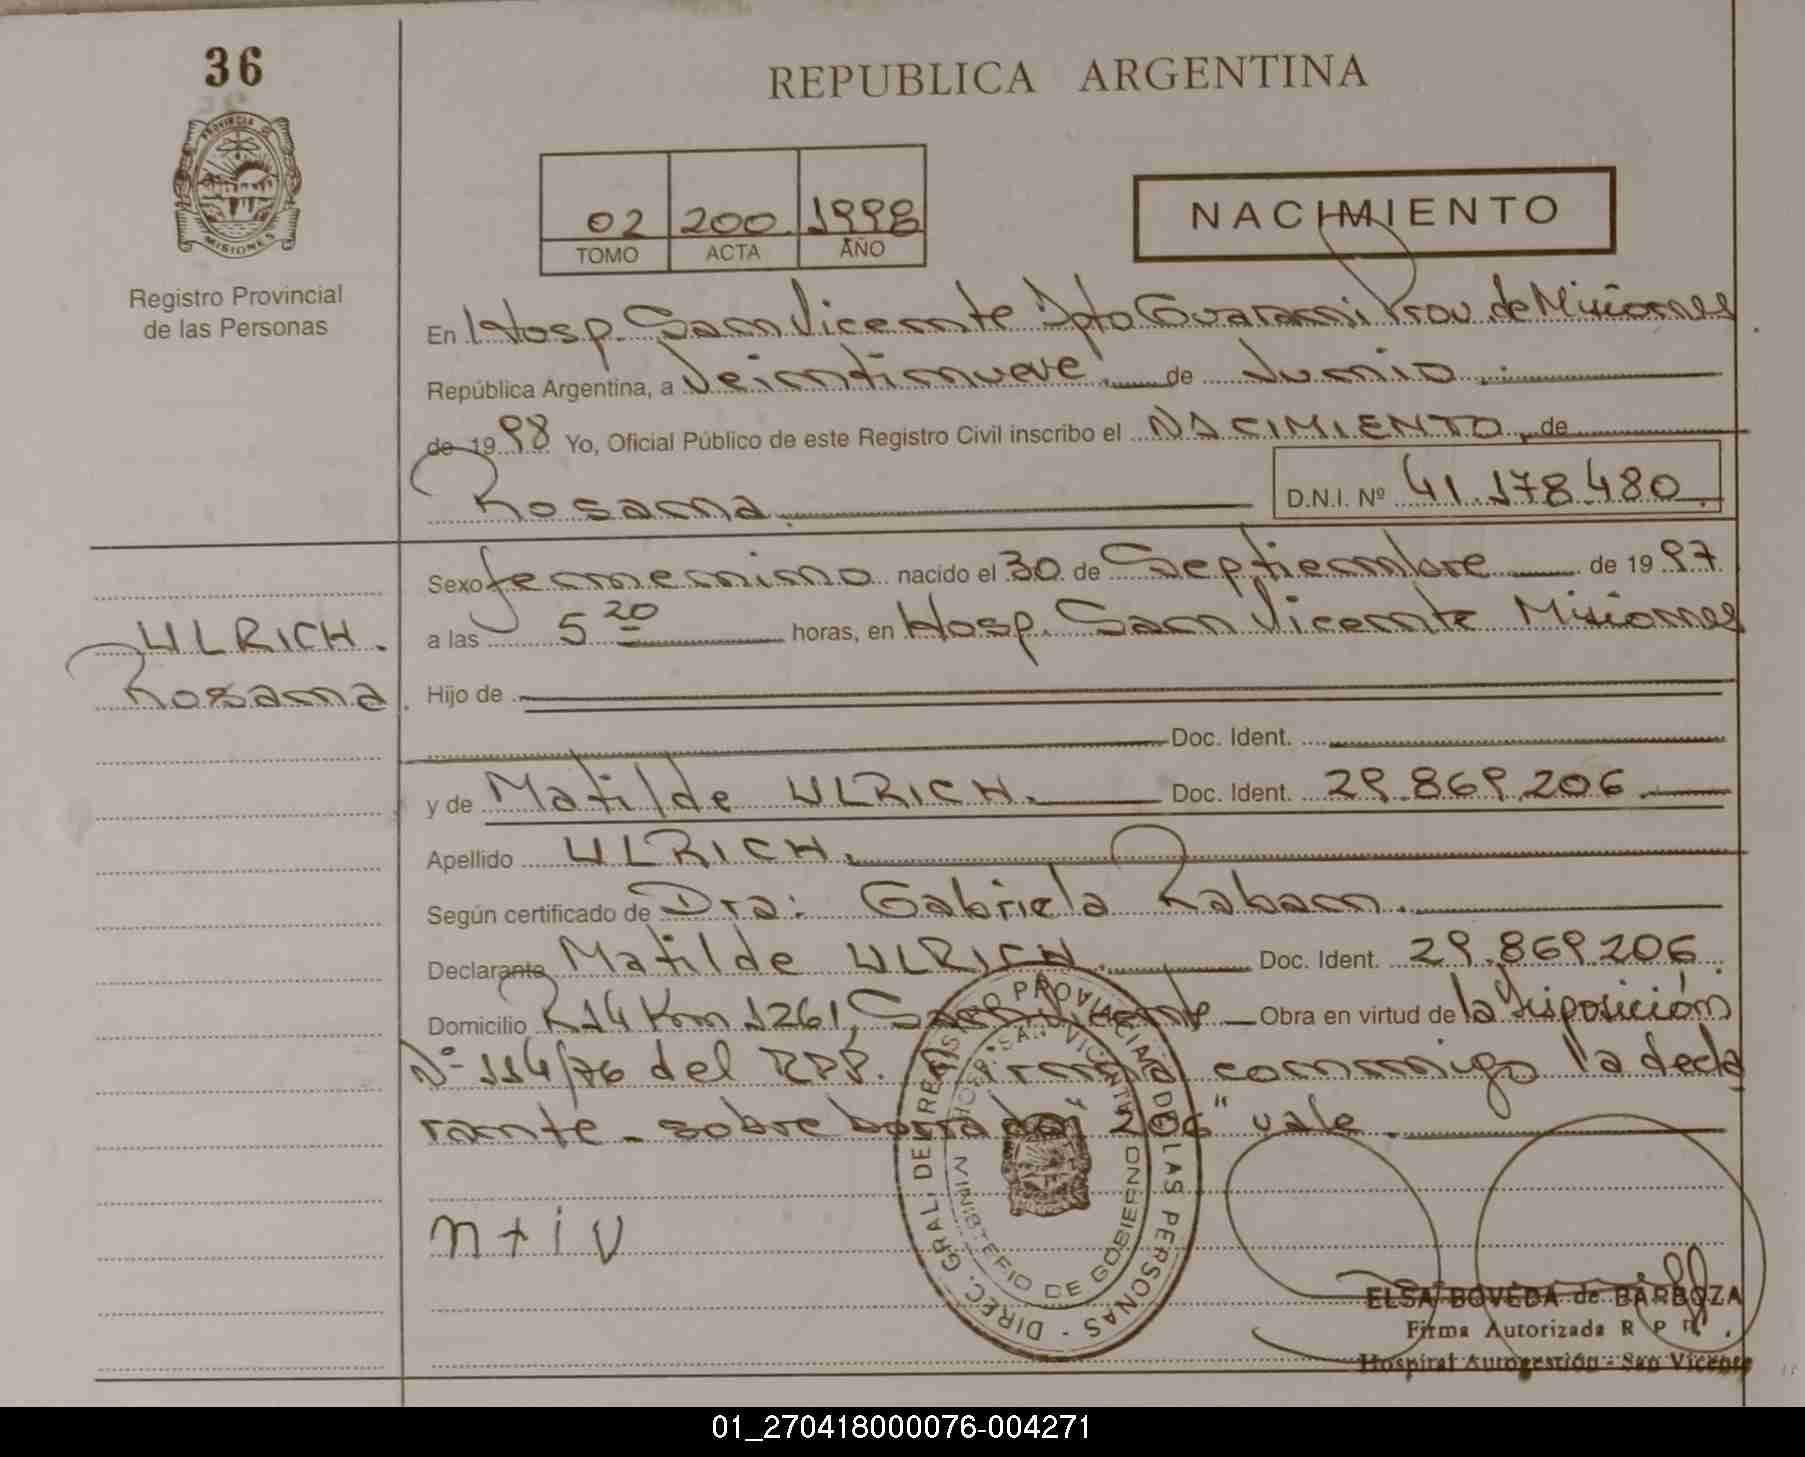 36
PROVINCIA DE
MISIONES
Registro Provincial
de las Personas
REPUBLICA ARGENTINA
02 200 1998
TOMO ACTA AÑO
NACIMIENTO
En Hosp. San Vicente Dpto Guarani Prov. de Misiones
República Argentina, a Veintinueve de Junio
de 1998 Yo, Oficial Público de este Registro Civil inscribo el NACIMIENTO, de
Rosana. D.N.I. Nº 41.178.480.
ULRICH.
Rosana.
Sexo femenino nacido el 30 de Septiembre de 1997
a las 5 20 horas, en Hosp. San Vicente Misiones
Hijo de
Doc. Ident.
y de Matilde ULRICH. Doc. Ident. 29.869.206.
Apellido ULRICH.
Según certificado de Dra: Gabriela Raban.
Declarante Matilde ULRICH. Doc. Ident. 29.869.206.
Domicilio R14 Km 1261, San Vicente Obra en virtud de la disposición
Nº 114/76 del RPP. Firma conmigo la decla
rante - sobre borrado: "206" vale.
DIREC. GRAL. DEL REGISTRO PROVINCIAL DE LAS PERSONAS -
HOSP. "SAN VICENTE"
MINISTERIO DE GOBIERNO
ELSA BOVEDA de BARBOZA
Firma Autorizada R P P.
Hospital Autogestión - San Vicente
01_270418000076-004271